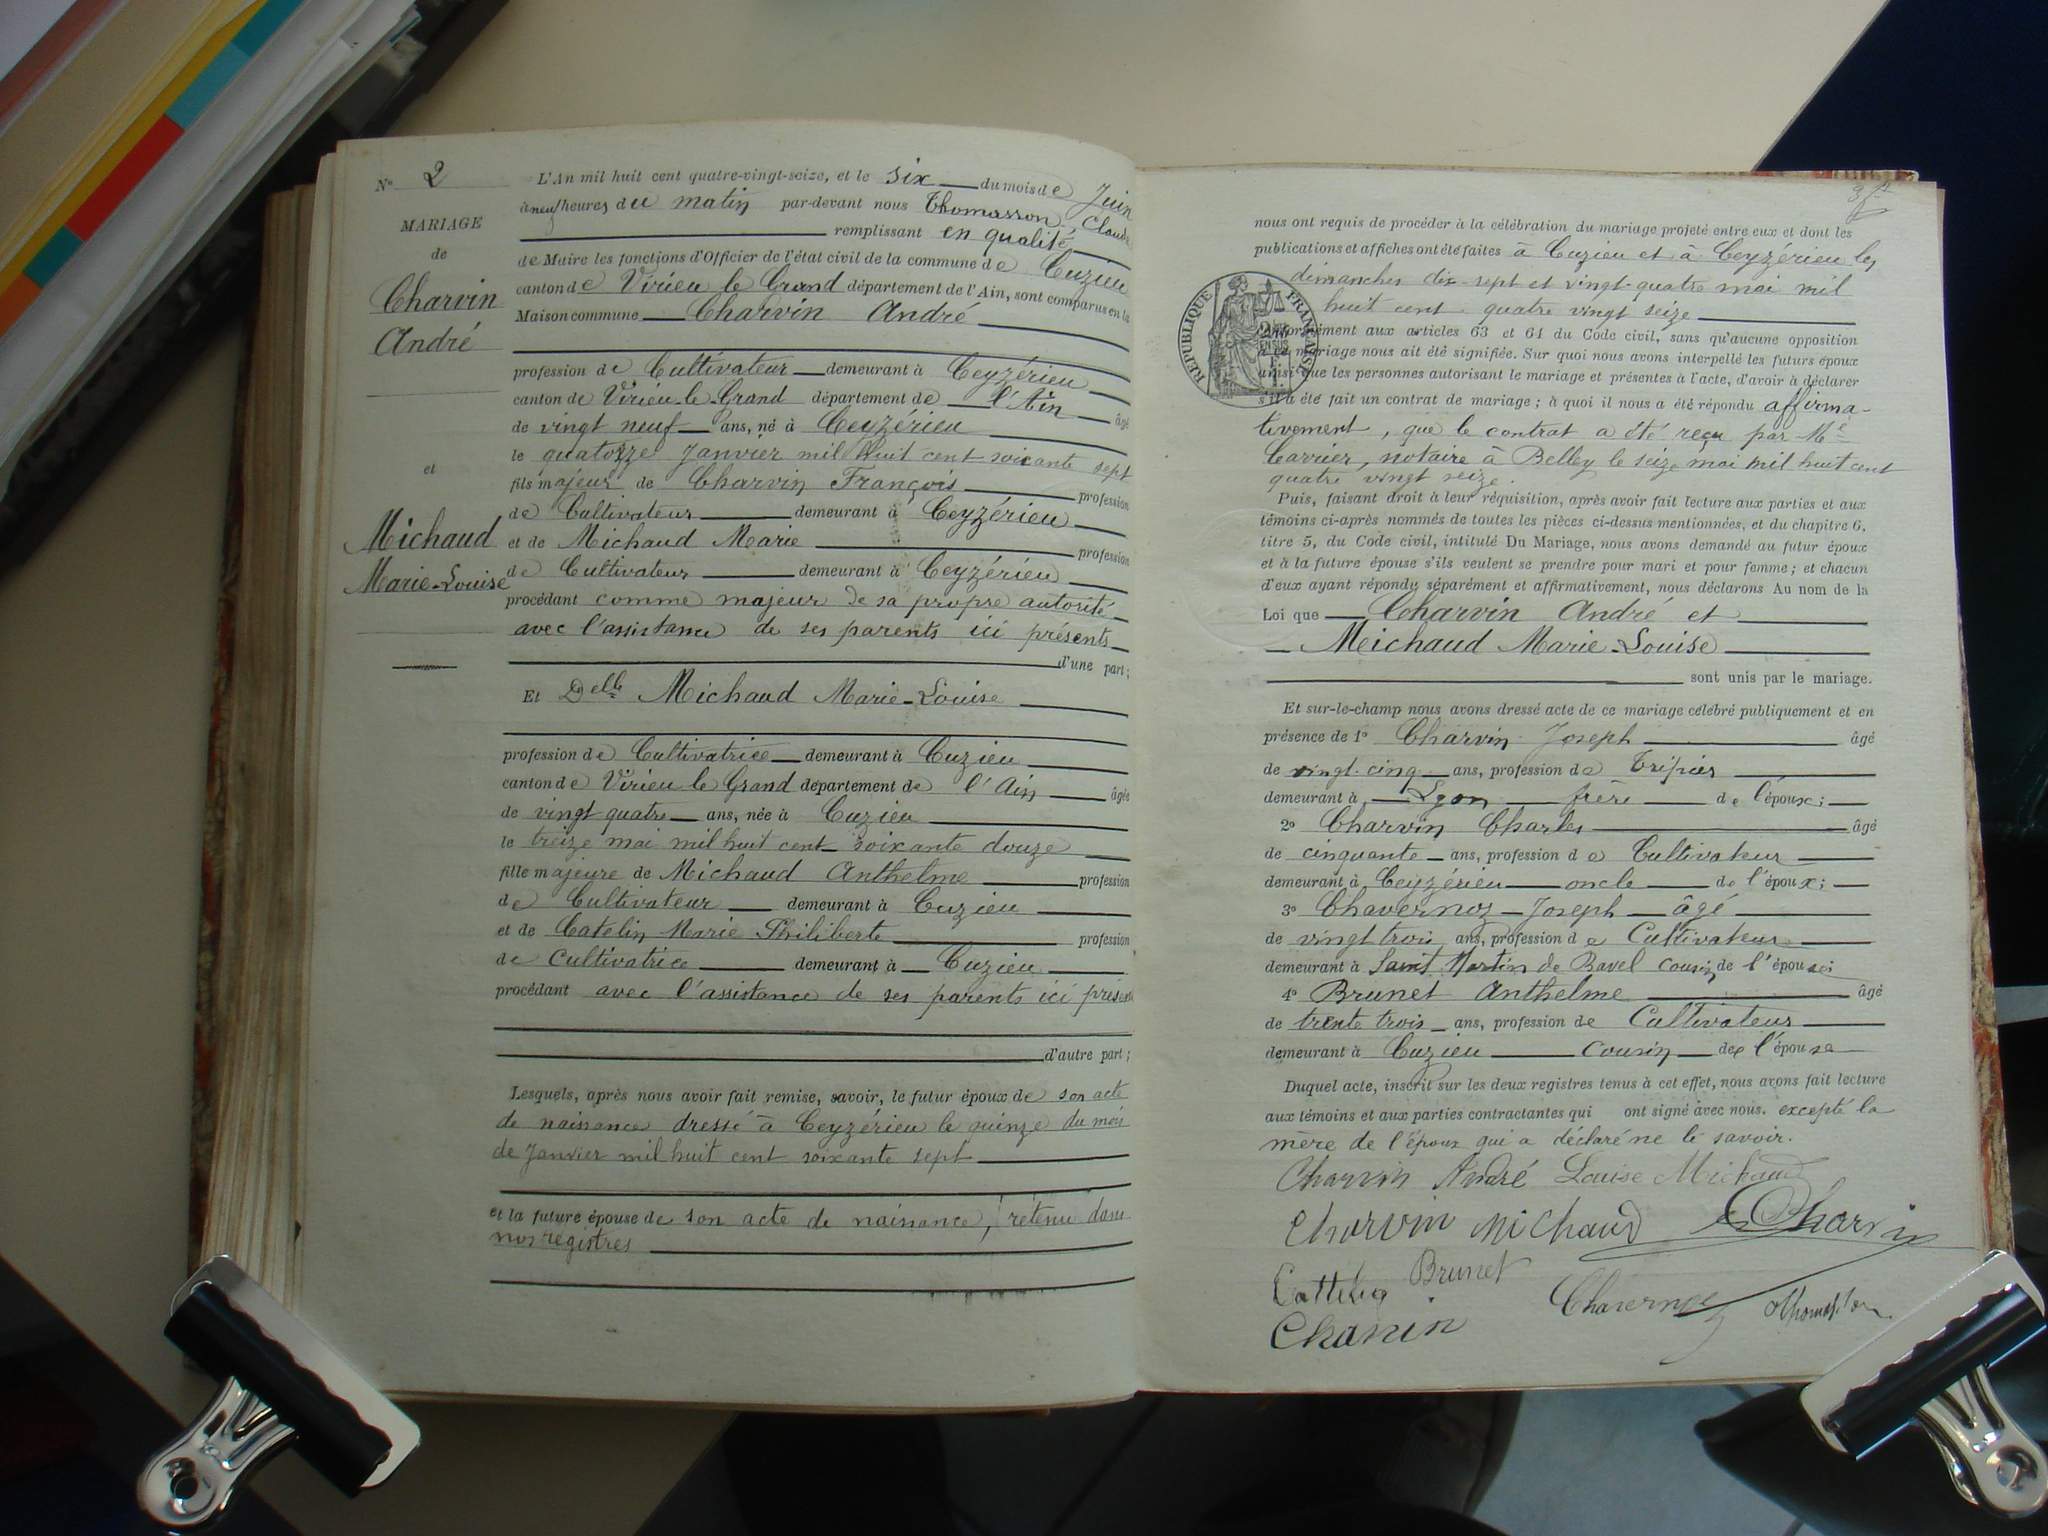 N° 2
MARIAGE
de
Charvin
André
et
Michaud
Marie-Louise
L'An mil huit cent quatre-vingt-seize, et le six du mois de Juin
à neuf heures du matin par-devant nous Thomasson Claude
remplissant en qualité
de Maire les fonctions d'Officier de l'état civil de la commune de Cuzieu
canton de Virieu le Grand département de l'Ain, sont comparus en la
Maison commune Charvin André
profession de Cultivateur demeurant à Ceyzérieu
canton de Virieu-le-Grand département de l'Ain âgé
de vingt neuf ans, né à Ceyzérieu
le quatorze Janvier mil huit cent soixante sept
fils majeur de Charvin François profession
de Cultivateur demeurant à Ceyzérieu
et de Michaud Marie profession
de Cultivateur demeurant à Ceyzérieu
procédant comme majeur de sa propre autorité
avec l'assistance de ses parents ici présents
d'une part;
Et Delle Michaud Marie-Louise
profession de Cultivatrice demeurant à Cuzieu
canton de Virieu le Grand département de l'Ain âgée
de vingt quatre ans, née à Cuzieu
le treize mai mil huit cent soixante douze
fille majeure de Michaud Anthelme profession
de Cultivateur demeurant à Cuzieu
et de Catelin Marie Philiberte profession
de cultivatrice demeurant à Cuzieu
procédant avec l'assistance de ses parents ici présents
d'autre part;
Lesquels, après nous avoir fait remise, savoir, le futur époux de son acte
de naissance dressé à Ceyzérieu le quinze du mois
de Janvier mil huit cent soixante sept
et la future épouse de son acte de naissance, retenu dans
nos registres
nous ont requis de procéder à la célébration du mariage projeté entre eux et dont les
publications et affiches ont été faites à Cuzieu et à Ceyzérieu les
dimanches dix-sept et vingt-quatre mai mil
huit cent quatre vingt seize
RÉPUBLIQUE FRANÇAISE
Conformément aux articles 63 et 64 du Code civil, sans qu'aucune opposition
à ce mariage nous ait été signifiée. Sur quoi nous avons interpellé les futurs époux
ainsi que les personnes autorisant le mariage et présentes à l'acte, d'avoir à déclarer
s'il a été fait un contrat de mariage; à quoi il nous a été répondu affirma-
tivement, que le contrat a été reçu par Me
Carrier, notaire à Belley le seize mai mil huit cent
quatre vingt seize.
Puis, faisant droit à leur réquisition, après avoir fait lecture aux parties et aux
témoins ci-après nommés de toutes les pièces ci-dessus mentionnées, et du chapitre 6,
titre 5, du Code civil, intitulé Du Mariage, nous avons demandé au futur époux
et à la future épouse s'ils veulent se prendre pour mari et pour femme; et chacun
d'eux ayant répondu séparément et affirmativement, nous déclarons Au nom de la
Loi que Charvin André et
Meichaud Marie-Louise
sont unis par le mariage.
Et sur-le-champ nous avons dressé acte de ce mariage célébré publiquement et en
présence de 1° Charvin Joseph âgé
de vingt-cinq ans, profession de Tripier
demeurant à Lyon frère de l'époux;
2° Charvin Charles âgé
de cinquante ans, profession de Cultivateur
demeurant à Ceyzérieu oncle de l'époux;
3° Chavernoz Joseph âgé
de vingt trois ans, profession de Cultivateur
demeurant à Saint Martin de Bavel cousin de l'épouse;
4° Brunet Anthelme âgé
de trente trois ans, profession de Cultivateur
demeurant à Cuzieu cousin de l'épouse
Duquel acte, inscrit sur les deux registres tenus à cet effet, nous avons fait lecture
aux témoins et aux parties contractantes qui ont signé avec nous. excepté la
mere de l'époux qui a déclaré ne le savoir.
Charvin André Louise Michaud
Charvin Michaud Charvin
Brunet
Cattelin Chavernoz Thomasson
Charvin